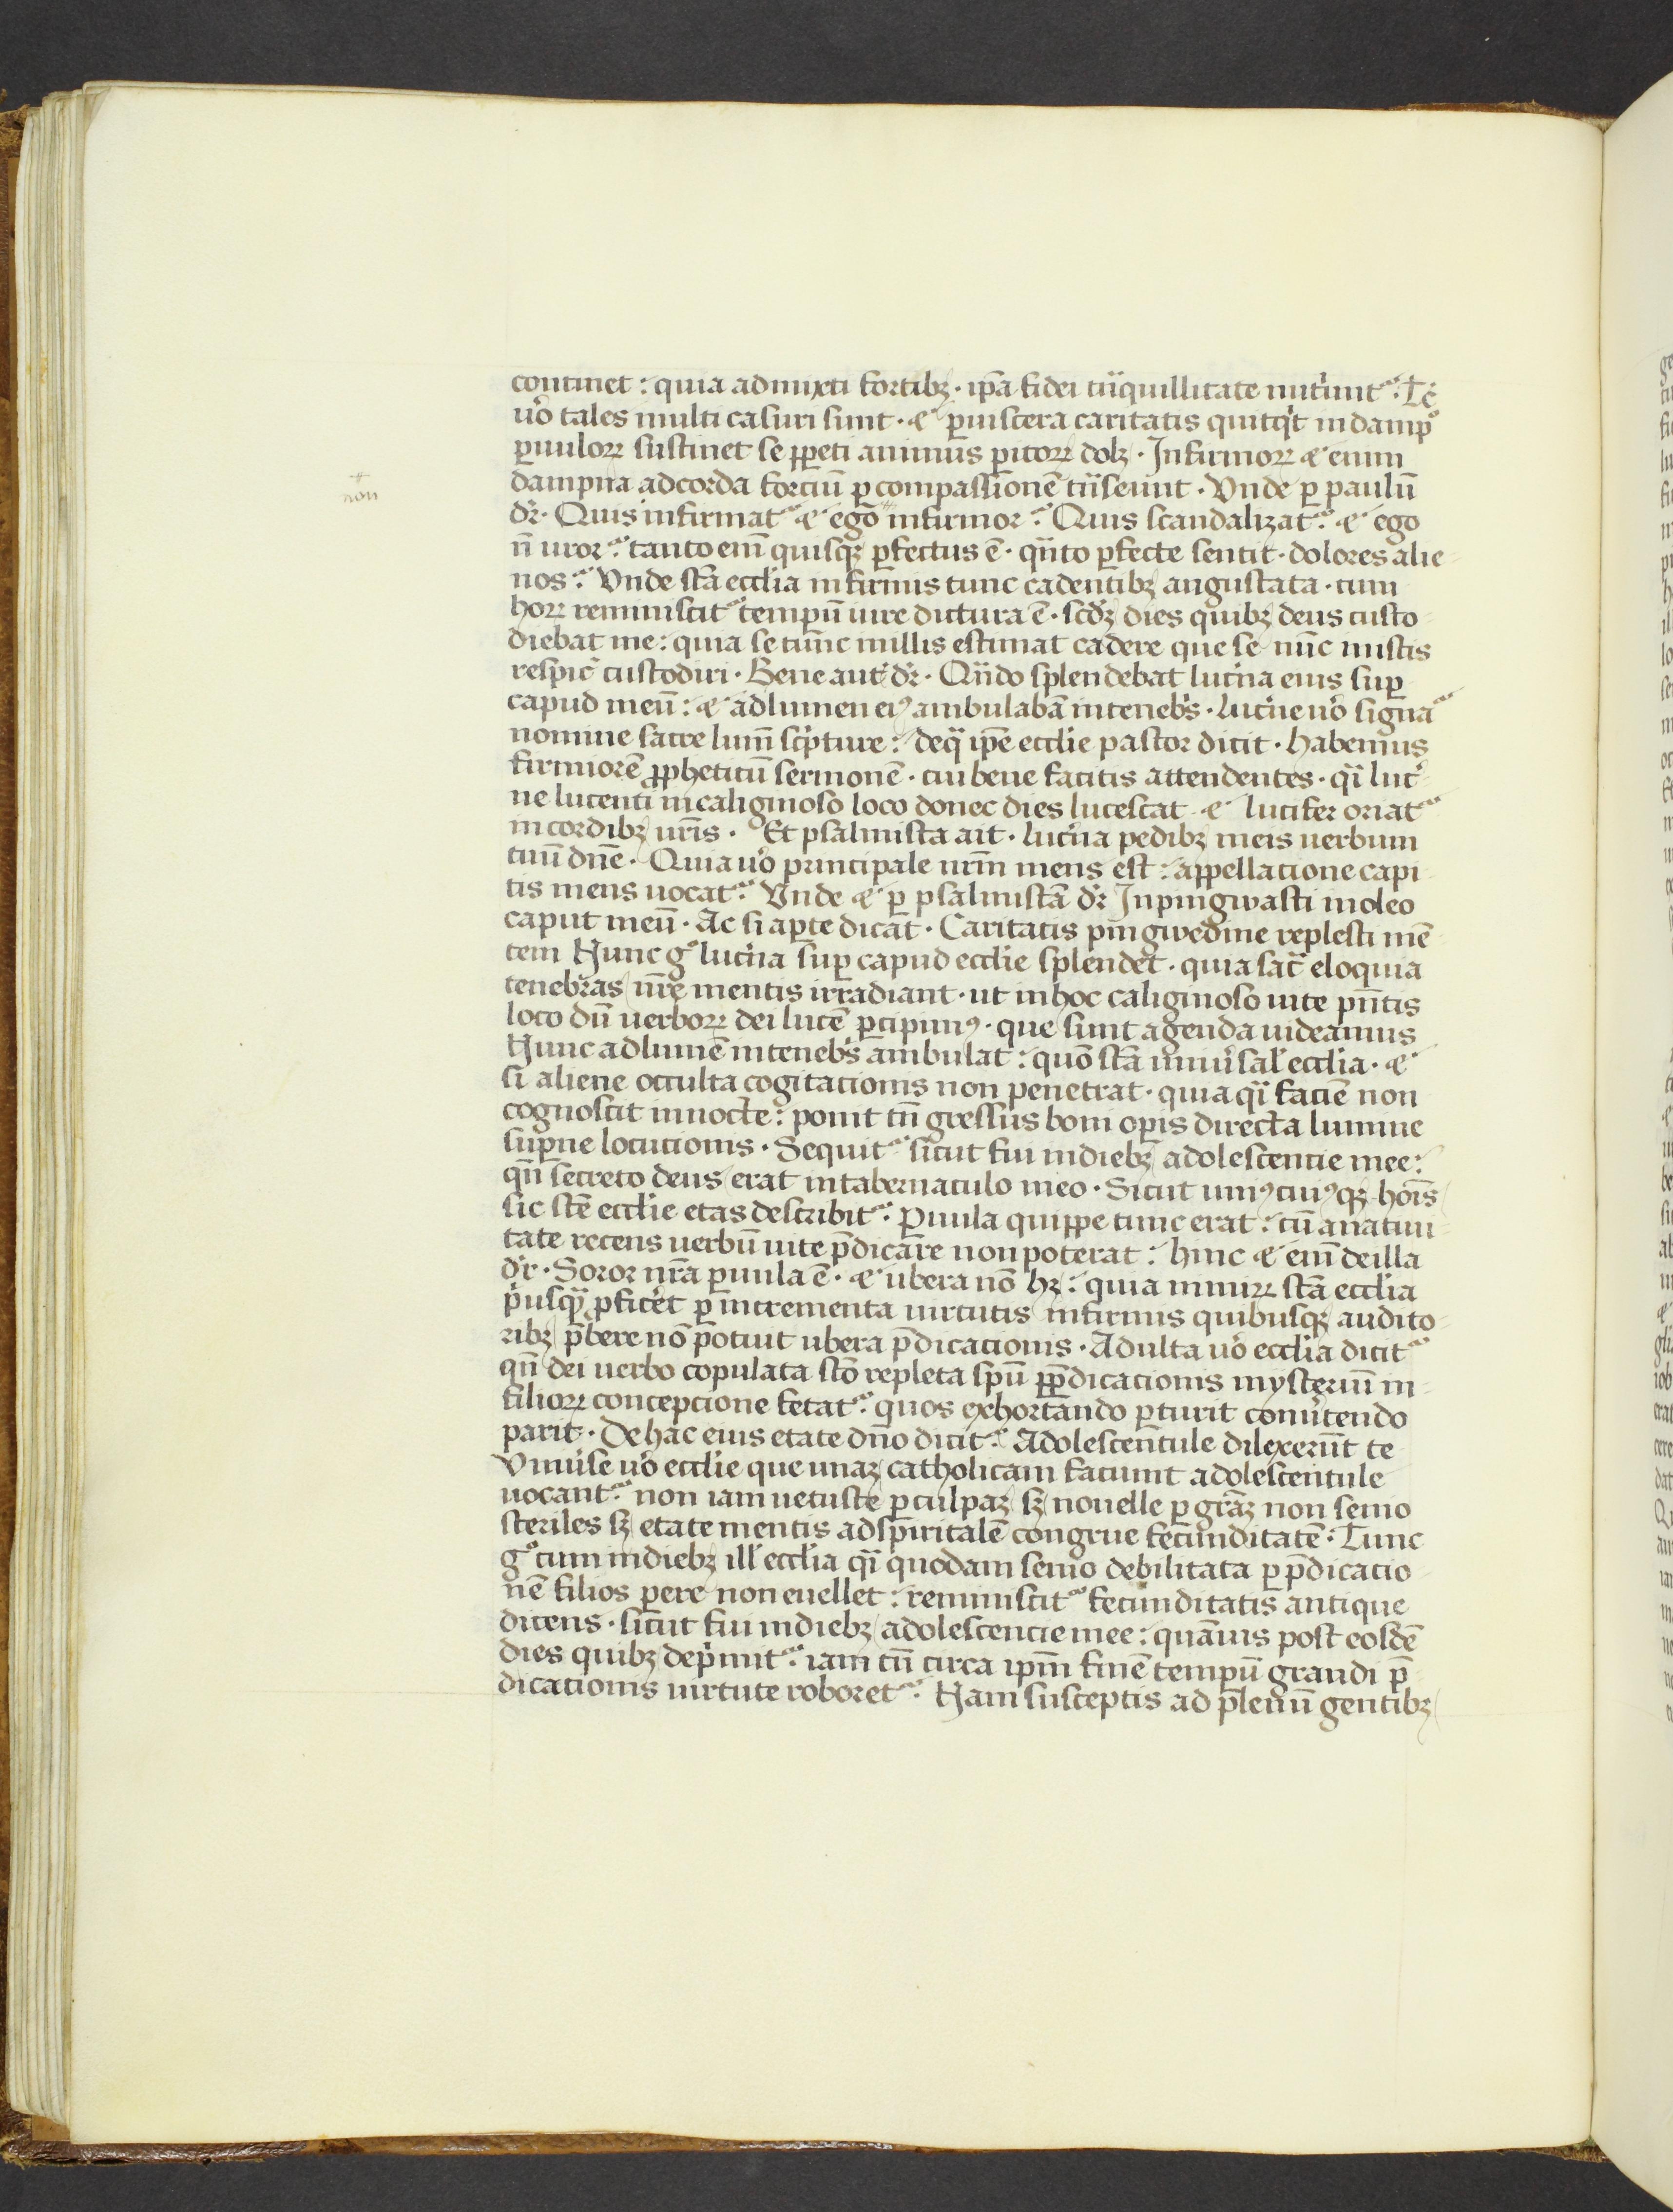 continet : quia admixti fortibꝫ · ip̄a fidei tᷓquillitate nut̉iunt᷑ : Tc̄
uo̓ tales multi casuri sunt · & ꝑ uiscera caritatis quitq̇t in dampn᷑
ꝑuulorꝝ sustinet se ꝑpeti animus ꝑitorꝝ dolꝫ · Infirmorꝝ & enim
dampna ad corda forciū ꝑ compassionē tᷓseunt · Vnde ꝑ paulū
non
dr̄ · Quis infirmat᷑ & ego infirmor : Quis scandalizat᷑ : & ego
n̄ uror : tanto eni̅ quisqꝫ ꝑfectus ē · qᷓnto ꝑfecte sentit · dolores alie
nos : Vnde sc̄a eccl̓ia infirmis tunc cadentibꝫ angustata · cum
horꝝ reminiscit᷑ tempū iure dictura ē · scd̓ꝫ dies quibꝫ deus custo
diebat me : quia se tunc in illis estimat cadere que se nūc in istis
respic̓ custodiri · Bene aut̓ dr̄ · Qᷓndo splendebat luc̓na eius suꝑ
capud meū : & ad lumen eiꝰ ambulabā in teneb̓s · Luc̓ne uo̓ signat᷑
nomine sacre lum̄ sc̓pture : de qᷓ ip̄e eccl̓ie pastor dicit · habemus
firmiorē ꝓpheticū sermonē · cui bene facitis attendentes · qᷓi luc̓
ne lucenti in caliginoso loco donec dies lucescat & lucifer oriat᷑
in cordibꝫ ur̄is · Et psalmista ait · luc̓na pedibꝫ meis uerbum
tuū dn̄e · Quia uo̓ principale nr̄m mens est : appellacione capi
tis mens uocat᷑ : Vnde & ꝑ psalmistā dr̄ Inpingwasti in oleo
caput meū · Ac si aꝑte dicat · Caritatis pingwedine replesti mē
tem Hunc gͦ luc̓na suꝑ capud eccl̓ie splendet · quia sac̄ eloquia
tenebras nr̄e mentis irradiant · ut in hoc caliginoso uite pn̄tis
loco dū uerborꝝ dei lucē ꝑcipimꝰ · que sunt agenda uideamus
Hunc ad lumē in teneb̓s ambulat : quō sc̄a uniu̓sal̓ eccl̓ia · &
si aliene occulta cogitacionis non penetrat · quia qᷓi faciē non
cognoscit in nocte : ponit tn̄ gressus boni oꝑis directa lumine
suꝑne locucionis · Sequit᷑ sicut fui in diebꝫ adolescencie mee :
qn̄ secreto deus erat in tabernaculo meo · Sicut uniꝰcuiꝰqꝫ hoīs
sic sc̄e eccl̓ie etas describit᷑ : Ꝑuula quippe tunc erat : cū a natiui
tate recens uerbū uite p̄dicare non poterat : hinc & eni̅ de illa
dr̄ · Soror nr̄a ꝑuula ē · & ubera nō hꝫ : quia nimirꝝ sc̄a eccl̓ia
p̓usqᷓ ꝓficeret ꝑ incrementa uirtutis infirmis quibusqꝫ audito
ribꝫ p̄bere nō potuit ubera p̄dicacionis · Adulta uo̓ eccl̓ia dicit᷑
qn̄ dei uerbo copulata sc̄o repleta sp̄u ꝑ p̄dicacionis mysteriū in
filiorꝝ concepcione fetat᷑ : quos exhortando ꝑturit conu̓tendo
parit · De hac eius etate dn̄o dicit᷑ : Adolescentule dilexerūt te
Vniu̓se uo̓ eccl̓ie que unaꝫ catholicam faciunt adolescentule
uocant᷑ : non iam uetuste ꝑ culpaꝫ sꝫ nouelle ꝑ gr̄aꝫ non senio
steriles sꝫ etate mentis ad spiritalē congrue fecunditatē · Tunc
gͦ cum in diebꝫ ill̓ eccl̓ia qᷓi quodam senio debilitata ꝑ p̄dicacio
nē filios ꝑere non euellet : reminiscit᷑ fecunditatis antique
dicens · sicut fui in diebꝫ adolescencie mee : quāuis post eosdē
dies quibꝫ dep̓mit᷑ : iam tn̄ circa ip̄m finē tempū grandi p̄
dicacionis uirtute roboret᷑ : Nam susceptis ad plenū gentibꝫ